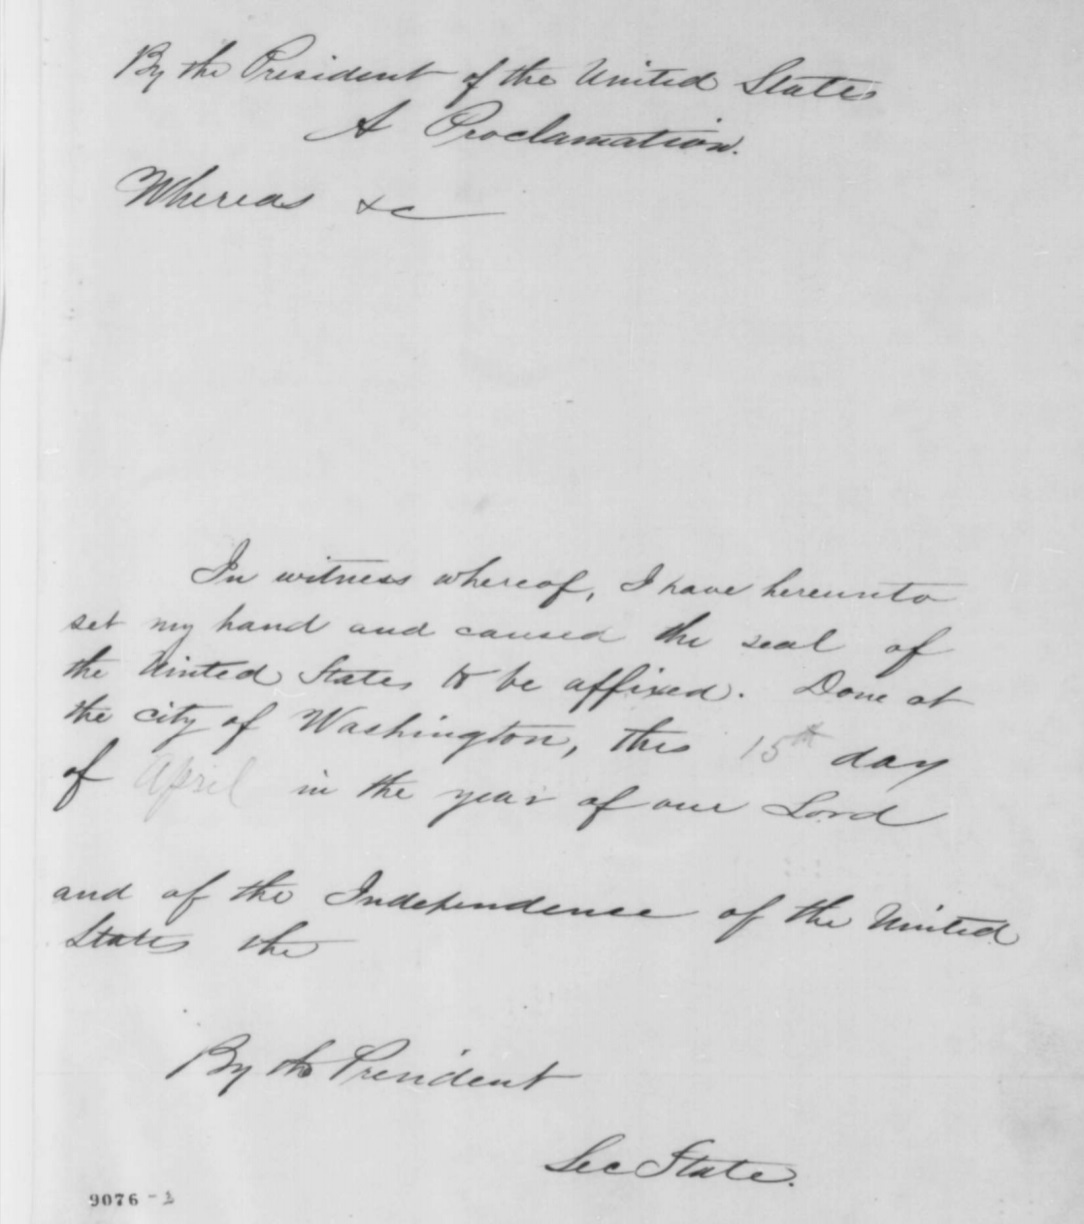 By the President of the United States
A Proclamation.
Whereas &c
In witness whereof, I have hereunto
set my hand and caused the seal of
the United States to be affixed. Done at
the city of Washington, this 15th day
of April in the year of our Lord
and of the Independence of the United
States the
By the President
Sec State.
9076